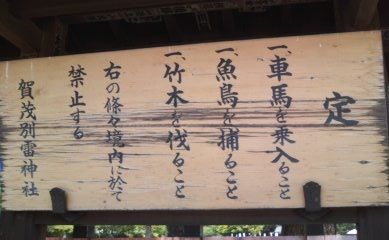 定
一、車馬を乗入ること
一、魚鳥を捕ること
一、竹木を伐ること
右の條々境内に於て
禁止する
賀茂別雷神社